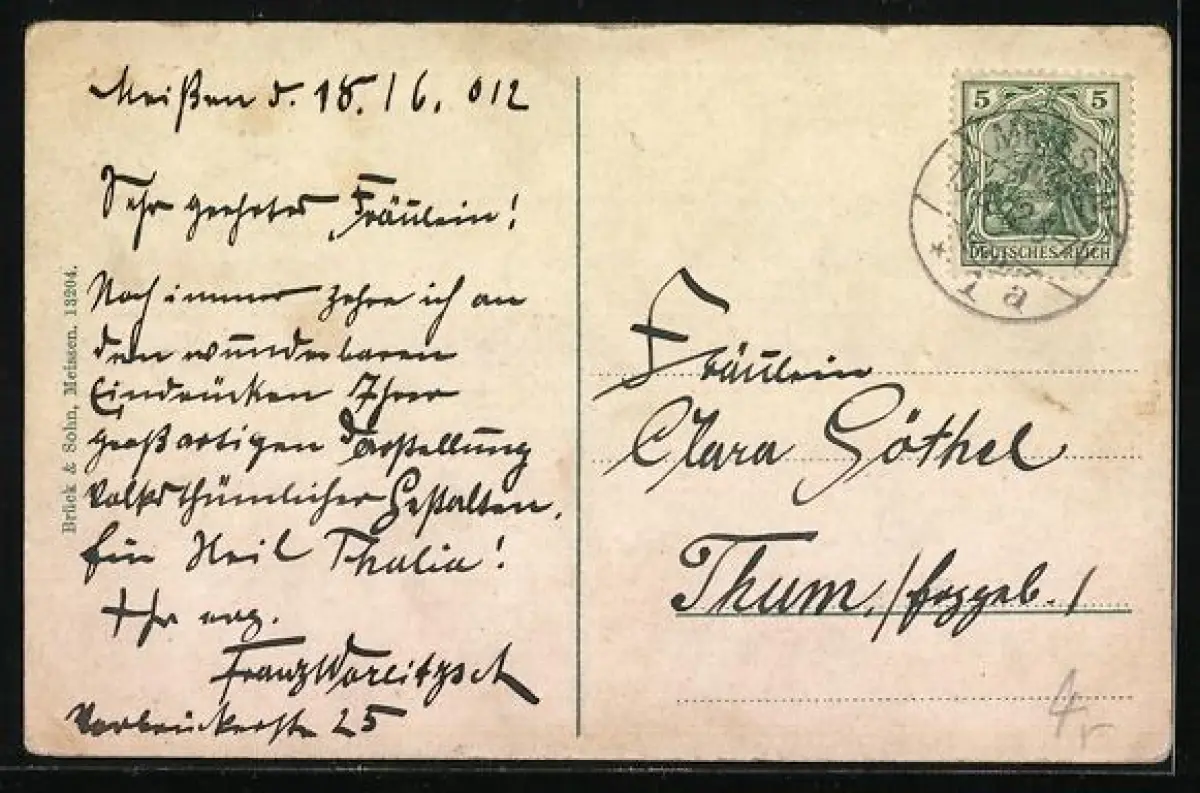 Meißen d. 15. / 6. 012
Sehr geehrtes Fräulein!
Noch immer zehre ich an
den wunderbaren
Eindrücken Ihrer
großartigen Darstellung
volksthümlicher Gestalten.
Ein Heil Thalia!
Ihr erg.
Franz Worlitzsch
Vorbrückerstr 25
Brück & Sohn, Meissen. 13204.
5 5
DEUTSCHES REICH
* 1 a
Fräulein
Clara Göthel
Thum, / Erzgeb. /